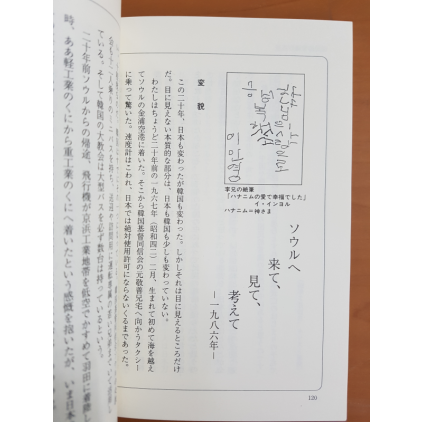 李兄の絶筆
「ハナニムの愛で幸福でした」
イ・インヨル
ハナニム＝神さま
ソウルへ
来て、
見て、
考えて
―一九八六年―
変貌
この二十年、日本も変わったが韓国も変わった。しかしそれは目に見えるところだけ
だ。目に見えない本質的な部分は、日本も韓国も少しも変わっていない。
わたしはちょうど二十年前の一九六七年（昭和四二）二月、生まれて初めて海を越え
てソウルの金浦空港に着いた。そこから韓国基督同信会の元敬善兄宅へ向かうタクシー
に乗って驚いた。速度計はこわれ、日本では絶対使用許可にならないくるまであった。
ている。そして韓国の大教会は大型バスを数台は持っているという。
二十年前ソウルからの帰途、飛行機が京浜工業地帯を低空でかすめて羽田に着陸し
時、ああ軽工業のくにから重工業のくにへ着いたという感慨を抱いたが、いま日本
120